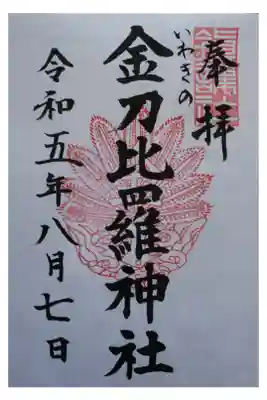 奉拝
いわきの
金刀比羅神社
令和五年八月七日